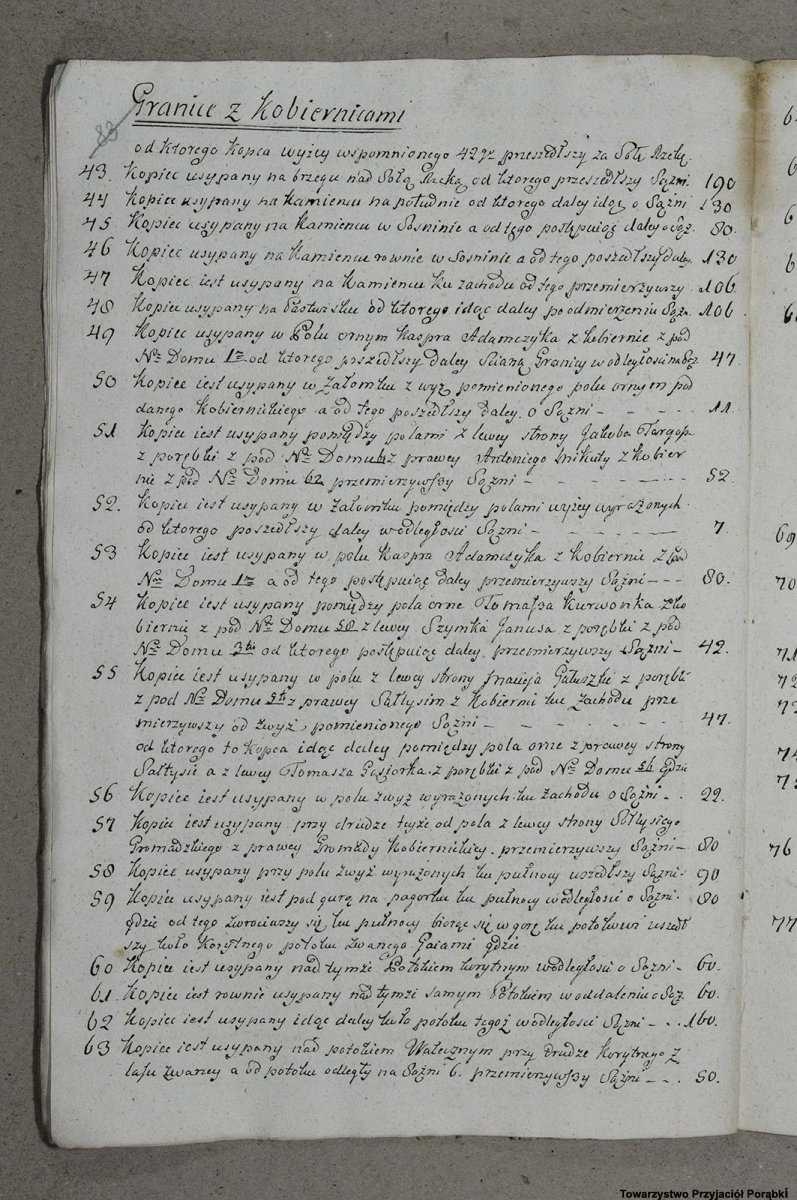 Granice z Kobiernicami
83
od ktorego kopca wyżey wspomnionego 42go przeszedłszy za Sołę Rzekę.
43. Kopiec usypany na brzegu nad Sołą Rzeką od ktorego przeszedłszy Sążni. 190
44 Kopiec usypany na kamiencu na południe od ktorego daley idąc o Sążni 130
45 Kopiec usypany na kamiencu w Sosninie a od tego postępuiąc daley o Sąż. 80.
46 Kopiec usypany na kamiencu rownie w Sosninie a od tego poszadłszy daley. 130
47 Kopiec iest usypany na kamiencu ku zachodu od tego przemierzywszy 106
48 Kopiec usypany na Pastwisku od ktorego idąc daley po odmierzeniu Sążn. 106
49 Kopiec usypany w Polu ornym Kaspra Adamczyka z Kobiernic z pod
Nro Domu 1ro od ktorego poszedłszy daley Scianą Granicy w odległosci na Sąż. 47.
50 Kopiec iest usypany w Załomku z wyż pomienionego polu ornym pod
danego Kobiernickiego a od tego poszedłszy daley o Sążni - - - - - 11.
51 Kopiec iest usypany pomiędzy polami z lewey strony Jakoba Targosz
z porębki z pod Nro Domu z prawey Antoniego Mikuły z Kobier
nic z pod Nro Domu 62 przemierzywszy Sążni - - - - 52.
52. Kopiec iest usypany w Załomku pomiędzy polami wyżey wyrażonych
od ktorego poszedłszy daley w odległosci Sążni - - - - - - 7.
53 Kopiec iest usypany w polu Kaspra Adamczyka z Kobiernic z pod
Nro Domu 1ro a od tego postępuiąc daley przemierzywszy Sążni - - - 80.
54 Kopiec iest usypany pomiędzy pola orne Tomasza Kurwonka z Ko
biernic z pod Nro Domu 58 z lewey Szymka Janusa z porębki z pod
Nro Domu 3tio od ktorego postępuiąc daley, przemierzywszy Sążni - 42.
55 Kopiec iest usypany w polu z lewey strony Macieja Gałuszki z porębki
z pod Nro Domu 5to z prawey Sałtysim z Kobiernic ku zachodu prze
mierzywszy od zwyż pomienionego Sążni - - - - - - 47.
od ktorego to kopca idąc daley pomiędzy pola orne z prawey strony
Sałtysie a z lewey Tomasza Gąsiorka z porębki z pod Nro Domu 54 gdzie
56 Kopiec iest usypany w polu zwyż wyrażonych ku zachodu o Sążni - . 22.
57 Kopiec iest usypany przy drudze teyże od pola z lewey strony Sołtysiego
Gromadzkiego z prawey Gromady Kobiernickiey przemierzywszy Sążni - 80
58 Kopiec usypany przy polu zwyż wyrażonych ku pułnocy uszedłszy Sążni - 90
59 Kopiec usypany iest pod gurą na pagorku ku pułnocy w odległosci o Sążni - 80
gdzie od tego zwrociwszy się ku pułnocy biorąc się w gorę ku potokowi uszedł
szy koło Korytnego potoku zwanego Gaiami gdzie
60 Kopiec iest usypany nad tymże Potokiem korytnym w odległosci o Sążni - 60.
61. Kopiec iest rownie usypany nad tymże samym Potokiem w oddaleniu o Sąż. 60.
62 Kopiec iest usypany idąc daley koło potoku tegoż w odległosci Sążni - - . 160.
63 Kopiec iest usypany nad potokiem Walecznym przy drudze Korytnego z
lasu zwaney a od potoku odległy na Sążni 6. przemierzywszy Sążni - - . 50.
Towarzystwo Przyjaciół Porąbki